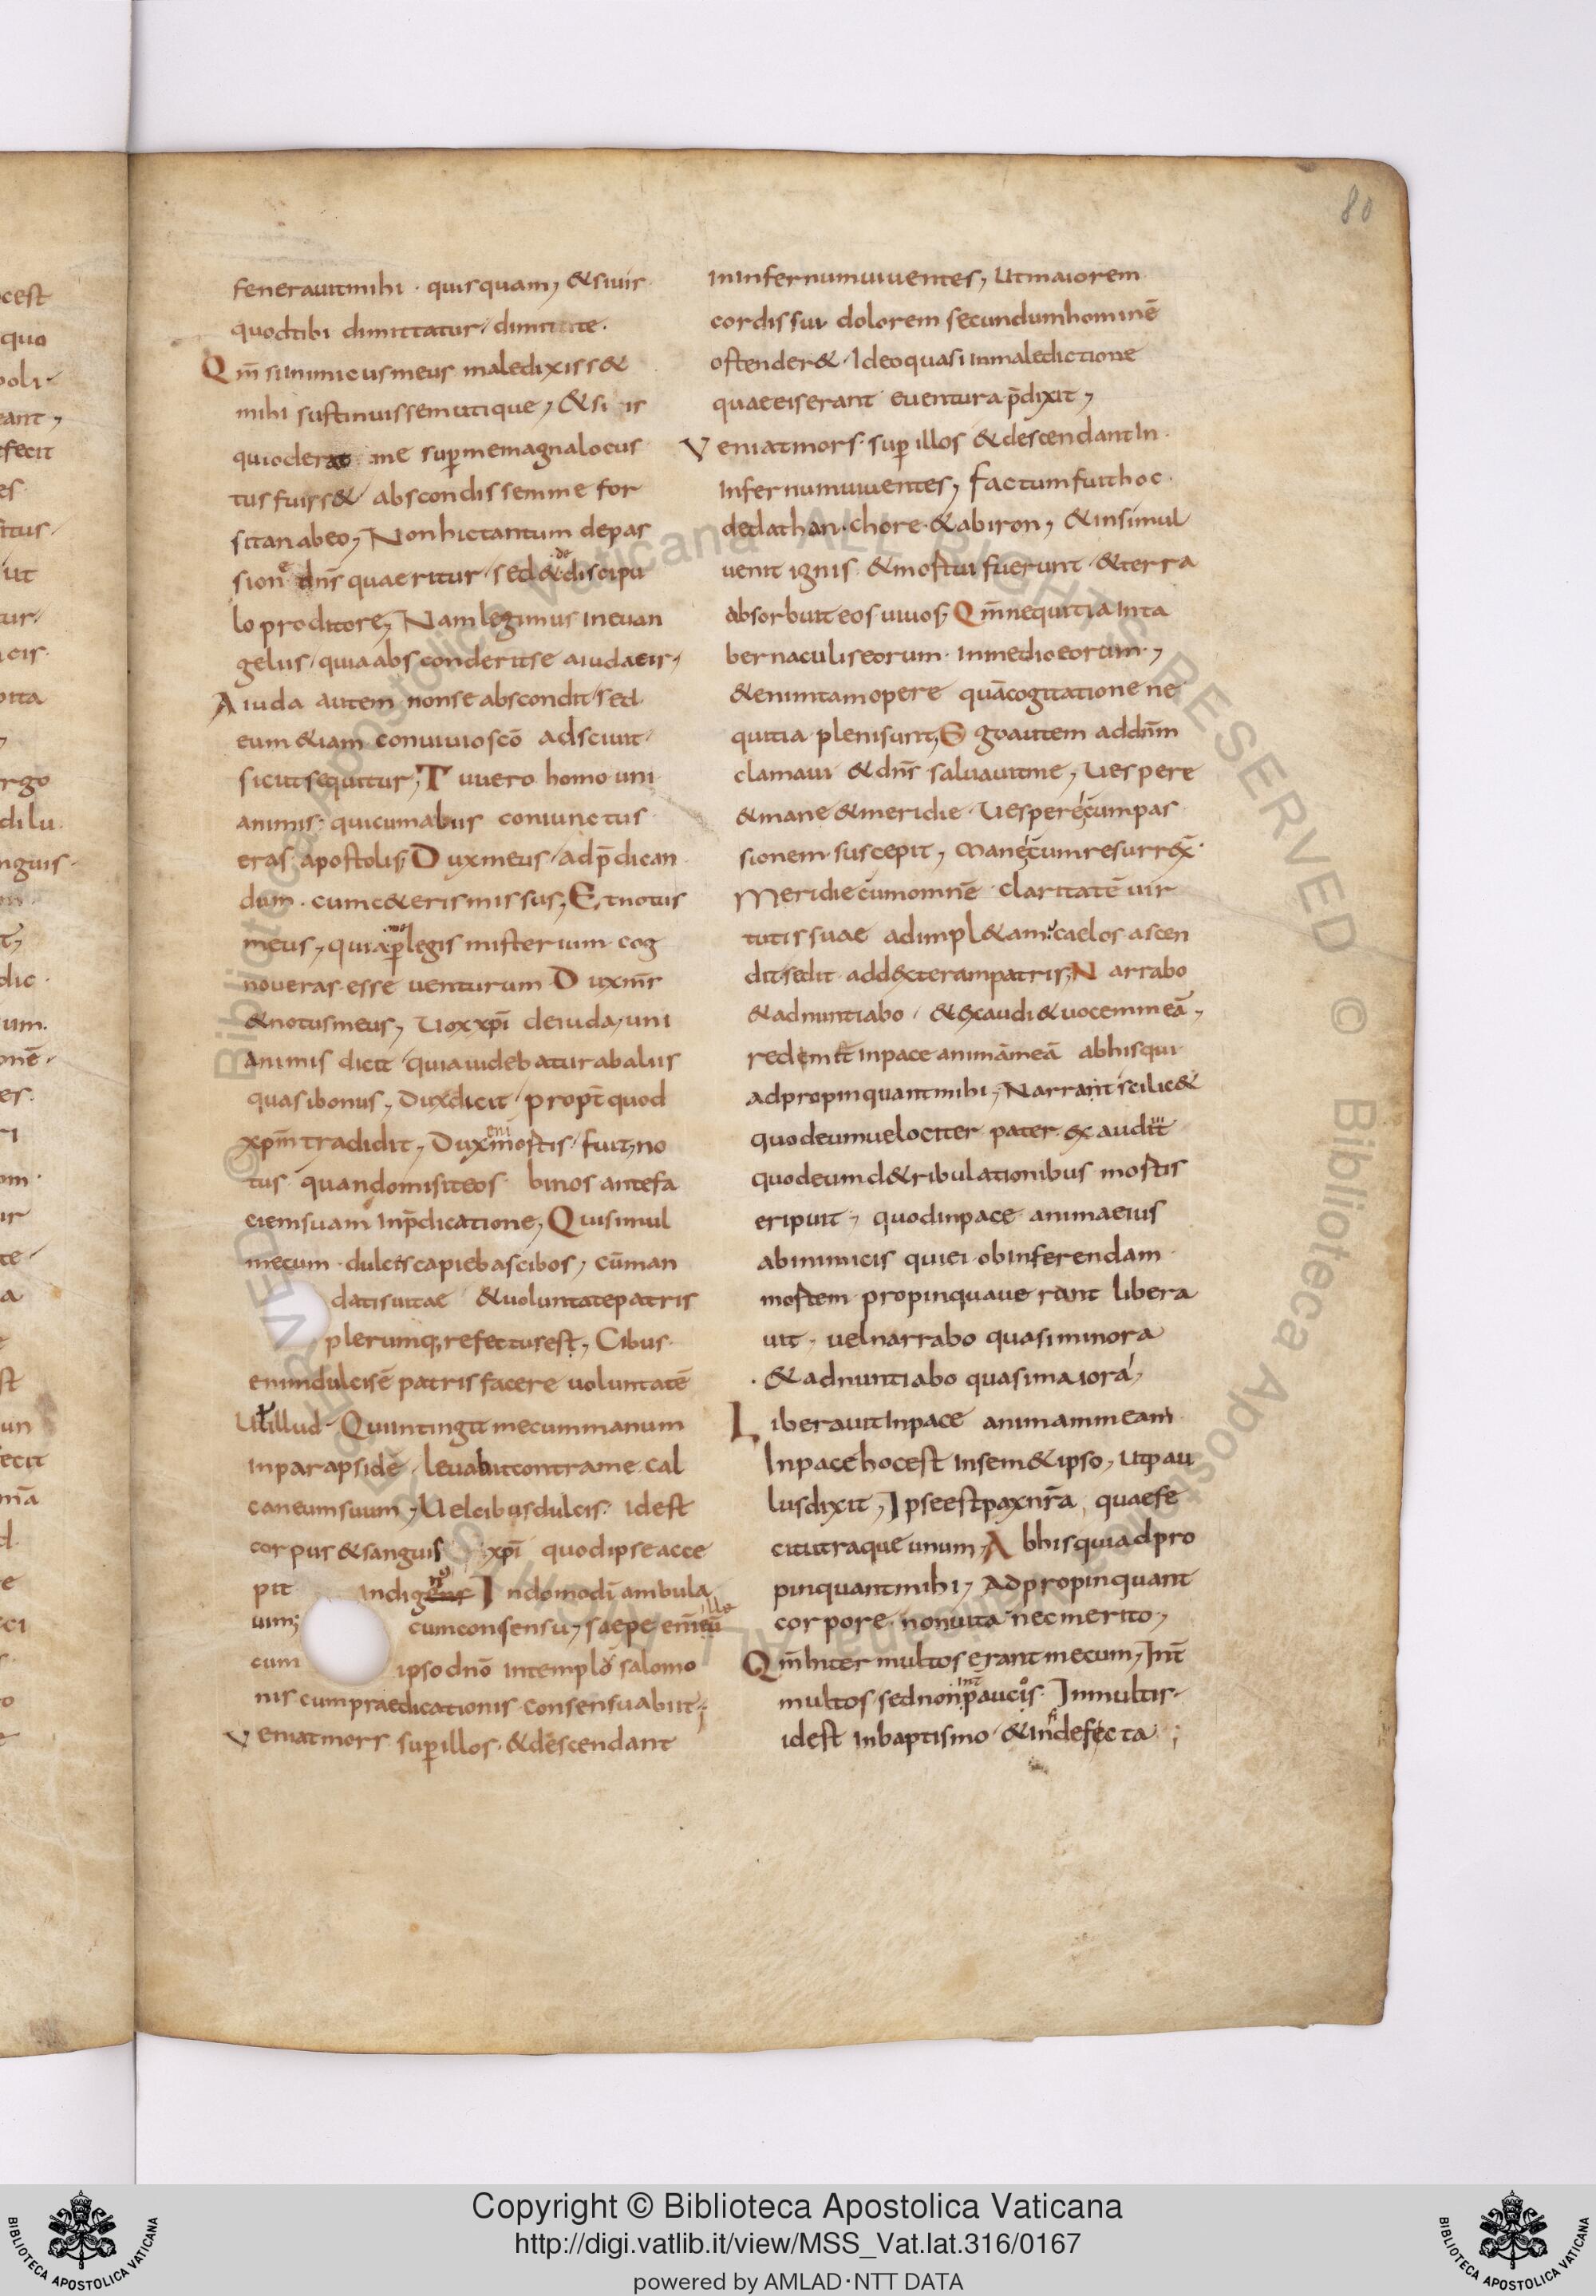 80
fenerauitmihi · quisquam, &siuis
quodtibi dimittatur, dimittite.
Qm̄ siinimicusmeus maledixiss&
mihi sustinuissemutique, &si is
quioderat me sup̄memagnalocus
tusfuiss& abscondissemme for
sitanabeo, Nonhictantum depas
sione dn̄s quaeritur, sed& de discipu
loproditore, Namlegimus ineuan
geliis, quiaabsconderitse aiudaeis,
Aiuda autem nonseabscondit, sed
eum&iam conuiuioscō adsciuit,
sicutsequitur, Tuuero homo uni
animis quicumaliis coniunctus
eras apostolis, Duxmeus, adp̄dican
dum · cumc&erismissus, Etnotus
meus, quiap̄legis misterium cog
noueras esse uenturum Duxm̄s
&notusmeus, Uoxxpī deiuda, uni
animis dicit, quiauidebaturabaliis
quasibonus, Duxdicit, propt̄quod
xpm̄tradidit, Duxenimostis, fuit, no
tus quandomisiteos binos antefa
ciemsuam inp̄dicatione, Quisimul
mecum · dulciscapiebascibos, cūman
datisuitae &uoluntatepatris
plerumq; refectusest, Cibus
enimdulcisē patrisfacere uoluntatē
Utillud Quiintingit mecummanum
inparapsidē, leuabitcontrame cal
caneumsuum, Uelcibusdulcis idest
corpus&sanguis xpī quodipseacce
pit indig Indomodī ambula
uim; cumconsensu, saepe enī ille eū
cum ipsodn̄o intemplo salomo
nis cumpraedicationis consensuabiit;
Veniatmors sup̄illos · &descendant
ininfernumuiuentes, Utmaiorem
cordissui dolorem secundumhominē
ostender& · Ideoquasiinmaledictione
quaeeiserant euenturap̄dixit,
Veniatmors sup̄ illos &descendantin
infernumuiuentes, factumfuithoc
dedathan · chore · &abiron, &insimul
uenit ignis &mostuifuerunt &terra
absorbuit eos uiuos, Qm̄nequitiainta
bernaculiseorum · inmedioeorum ·,
&enimtamopere quācogitatione ne
quitia plenisunt, Egoautem addn̄m
clamaui &dn̄s saluauitme, Uespere
&mane &meridie · Uesperecumpas
sionem suscepit, Manecumresurr&x ·
Meridiecumomnē claritatē uir
tutissuae adimpl&am caelos ascen
dit, sedit add&xterampatris, Narrabo
&adnuntiabo, &exaudi&uocemmeā,
redemit inpace animāmeā abhisqui
adpropinquantmihi, Narrant scilic&
quodeumuelociter pater exaudiit
quodeumd&ribulationibus mostis
eripuit, quodinpace animaeius
abinimicis quiei obinferendam
mostem propinquauerant libera
uit, uelnarrabo quasiminora
· &adnuntiabo quasimaiora,
Liberauitinpace animammeam
Inpace hocest insem&ipso, utpau
lusdixit, Ipseestpaxnr̄a, quaefe
citutraqueunum, Abhisquiadpro
pinquantmihi, Adpropinquant
corpore nonuita necmerito,
Qm̄inter multoserantmecum, Int̄
multos sednon int̄ paucos Inmultis,
idest inbaptismo &in defecta ;
Copyright © Biblioteca Apostolica Vaticana
http://digi.vatlib.it/view/MSS_Vat.lat.316/0167
powered by AMLAD·NTT DATA